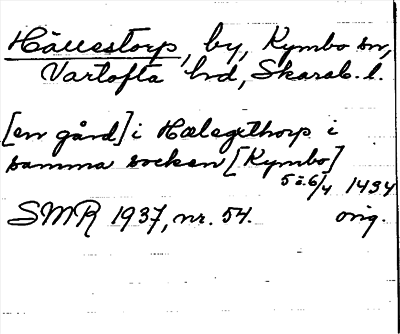 Hällestorp, by, Kymbo sn,
Vartofta hd, Skarab. l.
[en gård] i Hælægethorp i
samma socken [Kymbo]
5 ö. 6/4 1434
SMR 1937, nr. 54. orig.